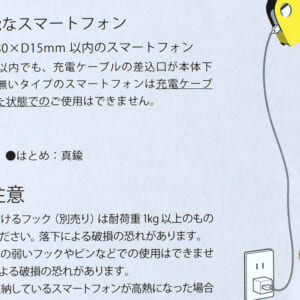 なスマートフォン
0×D15mm 以内のスマートフォン
以内でも、充電ケーブルの差込口が本体下
無いタイプのスマートフォンは充電ケーブ
た状態でのご使用はできません。
●はとめ：真鍮
注意
けるフック（別売り）は耐荷重1kg以上のもの
ださい。落下による破損の恐れがあります。
の弱いフックやピンなどでの使用はできませ
よる破損の恐れがあります。
納しているスマートフォンが高熱になった場合